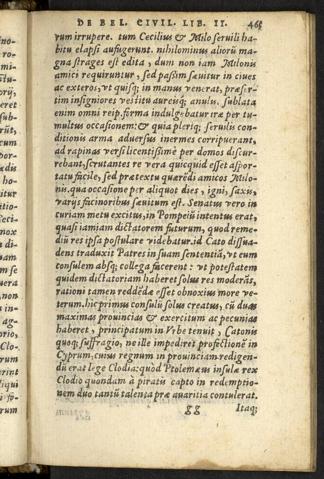 DE BEL. CIVIL. LIB. II. 465
rum irrupere. tum Cecilius & Milo seruili ha-
bitu elapsi aufugerunt. nihilominus aliorū ma-
gna strages est edita, dum non iam Milonis
amici requiruntur, sed passim sæuitur in ciues
ac exteros, vt quisq; in manus venerat, præser-
tim insigniores vestitu aureisq; anulis. sublata
enim omni reip. forma indulgebatur iræ per tu-
multus occasionem: & quia pleriq; seruilis con-
ditionis arma aduersus inermes corripuerant,
ad rapinas versi licentissimè per domos discur-
rebant, scrutantes re vera quicquid esset aspor-
tatu facile, sed prætextu quærēdi amicos Milo-
nis. qua occasione per aliquot dies, igni, saxis,
varijs facinoribus sæuitum est. Senatus vero in
curiam metu excitus, in Pompeiū intentus erat,
quasi iamiam dictatorem futurum, quod reme-
diū res ipsa postulare videbatur. id Cato dissua-
dens traduxit Patres in suam sententiā, vt eum
consulem absq; collega facerent: vt potestatem
quidem dictatoriam haberet solus res moderās,
rationi tamen reddēdæ esset obnoxius more ve-
terum. hic primus consulū solus creatus, cū duas
maximas prouincias & exercitum ac pecunias
haberet, principatum in Vrbe tenuit, Catonis
quoq; suffragio, ne ille impediret profectionē in
Cyprum, cuius regnum in prouinciam redigen-
dū erat lege Clodia: quod Ptolemæus insulæ rex
Clodio quondam à piratis capto in redemptio-
nem duo tantū talenta præ auaritia contulerat.
gg Itaq;